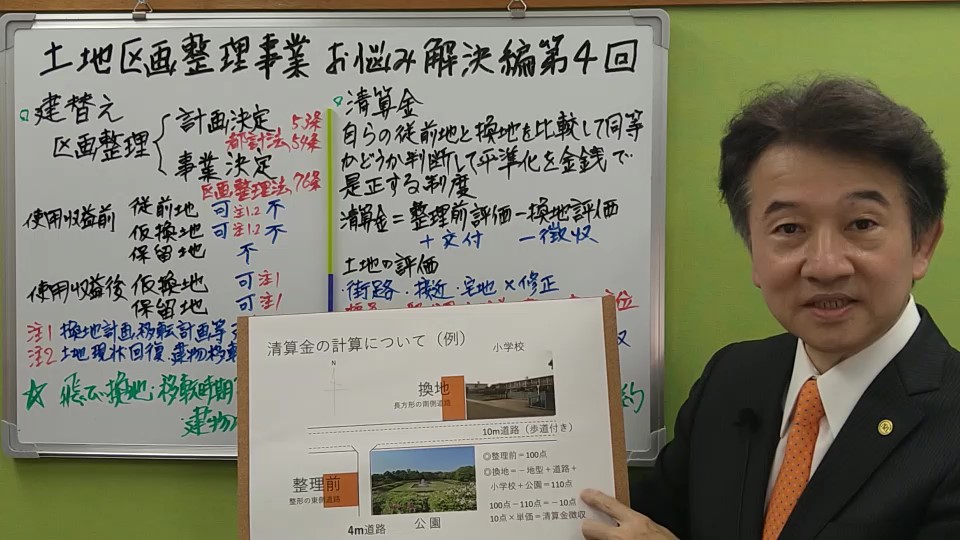 土地区画整理事業 お悩み解決編第4回
建替え
区画整理
計画決定 53条
都計法 54条
事業決定
区画整理法 76条
使用収益前 従前地 可 注1.2 不
仮換地 可 注1.2 不
保留地 不
使用収益後 仮換地 可 注1
保留地 可 注1
注1 換地計画、移転計画等
注2 土地現状回復、建物移転
☆ 飛び換地・移転時期
建物
清算金
自らの従前地と換地を比較して同等
かどうか判断して平準化を金銭で
是正する制度
清算金=整理前評価-換地評価
+交付 -徴収
土地の評価
・街路・接近・宅地×修正
位
収
約
清算金の計算について(例)
小学校
N
換地
長方形の南側道路
10m道路(歩道付き)
整理前
整形の東側道路
4m道路
公園
◎整理前=100点
◎換地=-地型+道路+
小学校+公園=110点
100点-110点=-10点
10点×単価=清算金徴収